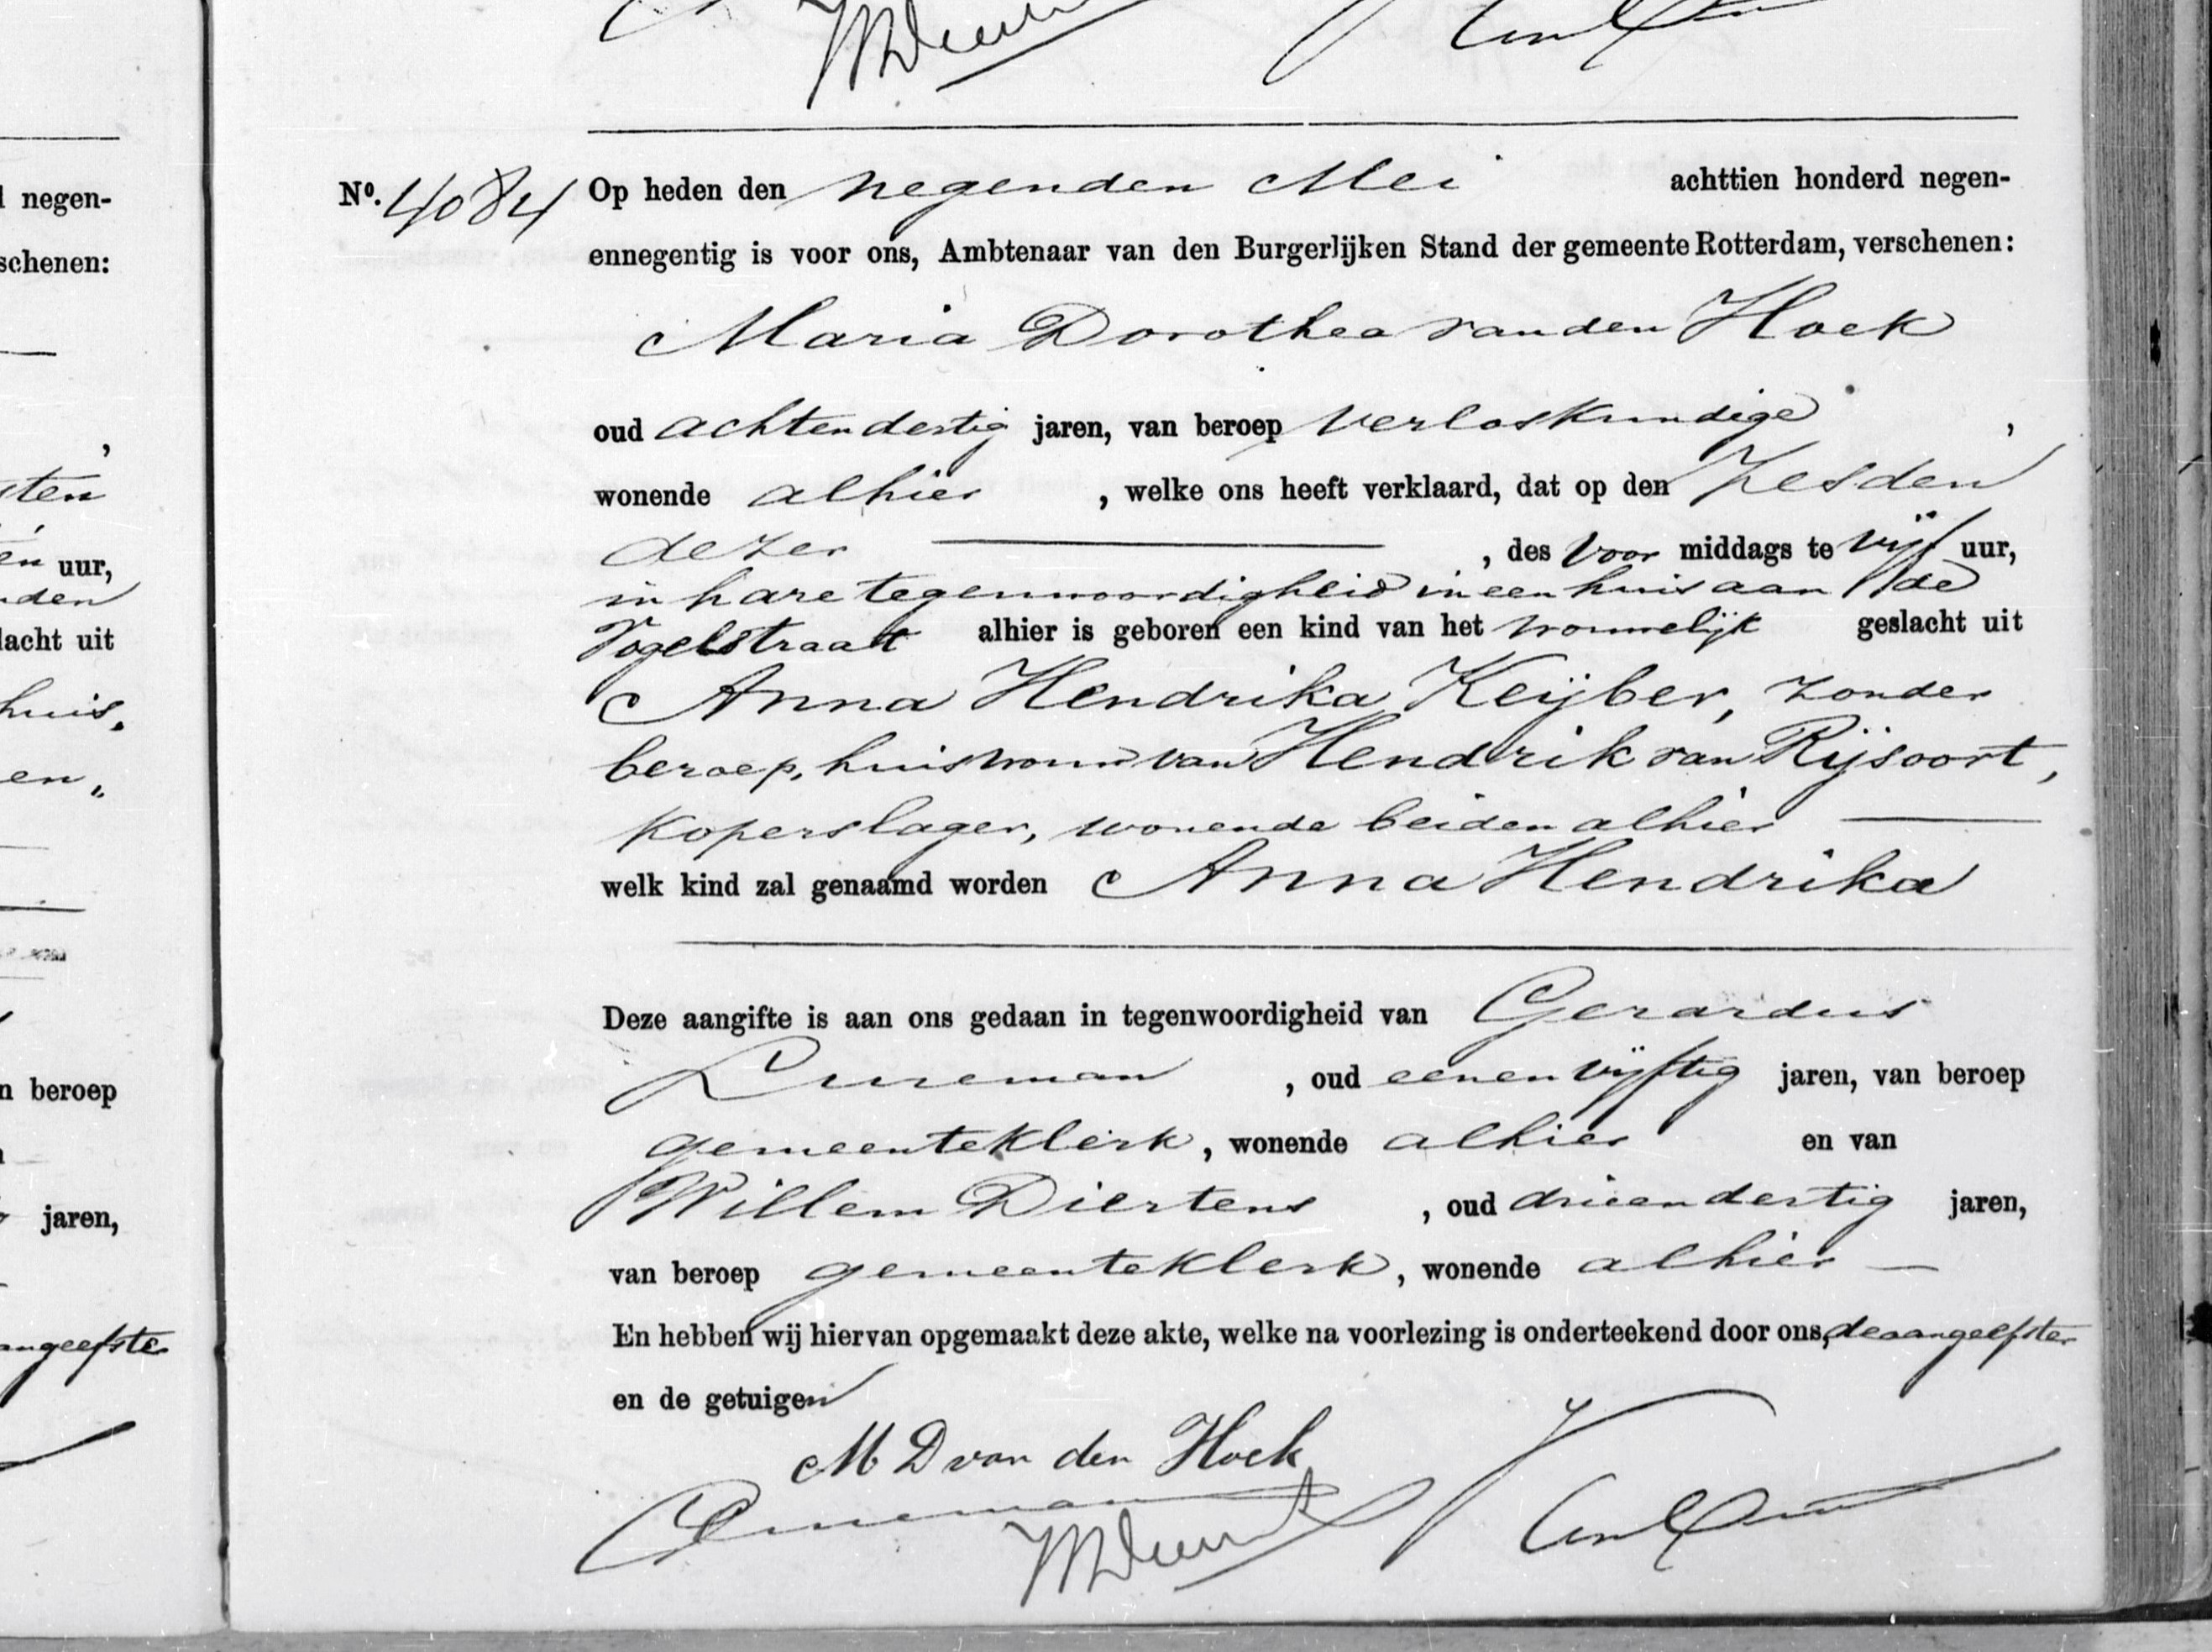 negen-
schenen:
,
sten
en uur,
nden
lacht uit
huis,
en,
n beroep
jaren,
angeefster
No. 4084 Op heden den negenden Mei achttien honderd negen-
ennegentig is voor ons, Ambtenaar van den Burgerlijken Stand der gemeente Rotterdam, verschenen:
Maria Dorothea van den Hoek
oud achtendertig jaren, van beroep verloskundige ,
wonende alhier , welke ons heeft verklaard, dat op den zesden
dezer , des voor middags te vijf uur,
in hare tegenwoordigheid in een huis aan de
Vogelstraat alhier is geboren een kind van het vrouwelijk geslacht uit
Anna Hendrika Keijber, zonder
beroep, huisvrouw van Hendrik van Rijsoort,
koperslager, wonende beiden alhier
welk kind zal genaamd worden Anna Hendrika
Deze aangifte is aan ons gedaan in tegenwoordigheid van Gerardus
, oud eenenvijftig jaren, van beroep
gemeenteklerk, wonende alhier en van
Willem Diertens , oud drieendertig jaren,
van beroep gemeenteklerk, wonende alhier
En hebben wij hiervan opgemaakt deze akte, welke na voorlezing is onderteekend door ons, de aangeefster
en de getuigen
M D van den Hoek